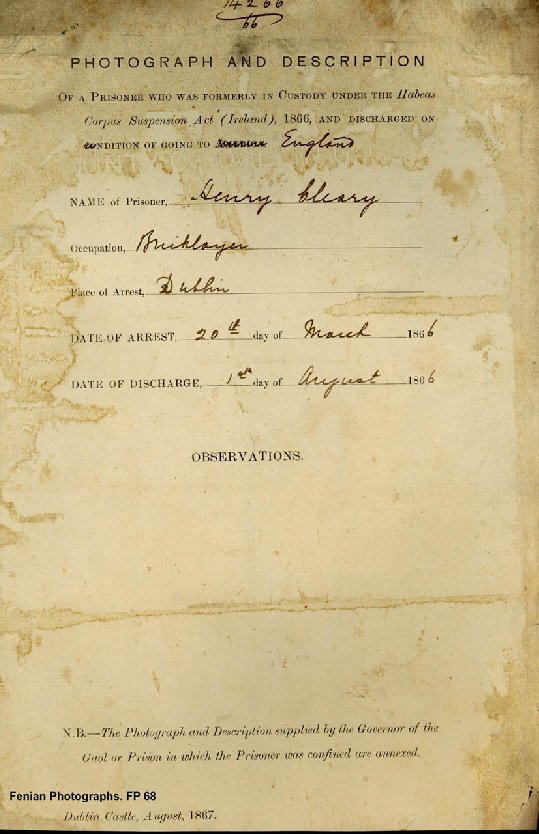 14266
66
PHOTOGRAPH AND DESCRIPTION
OF A PRISONER WHO WAS FORMERLY IN CUSTODY UNDER THE Habeas
Corpus Suspension Act (Ireland), 1866, AND DISCHARGED ON
CONDITION OF GOING TO England
NAME of Prisoner, Henry Cleary
Occupation, Bricklayer
Place of Arrest, Dublin
DATE OF ARREST, 20th day of March 1866
DATE OF DISCHARGE, 1st day of August 1866
OBSERVATIONS.
N.B.—The Photograph and Description supplied by the Governor of the
Gaol or Prison in which the Prisoner was confined are annexed.
Fenian Photographs. FP 68
Dublin Castle, August, 1867.